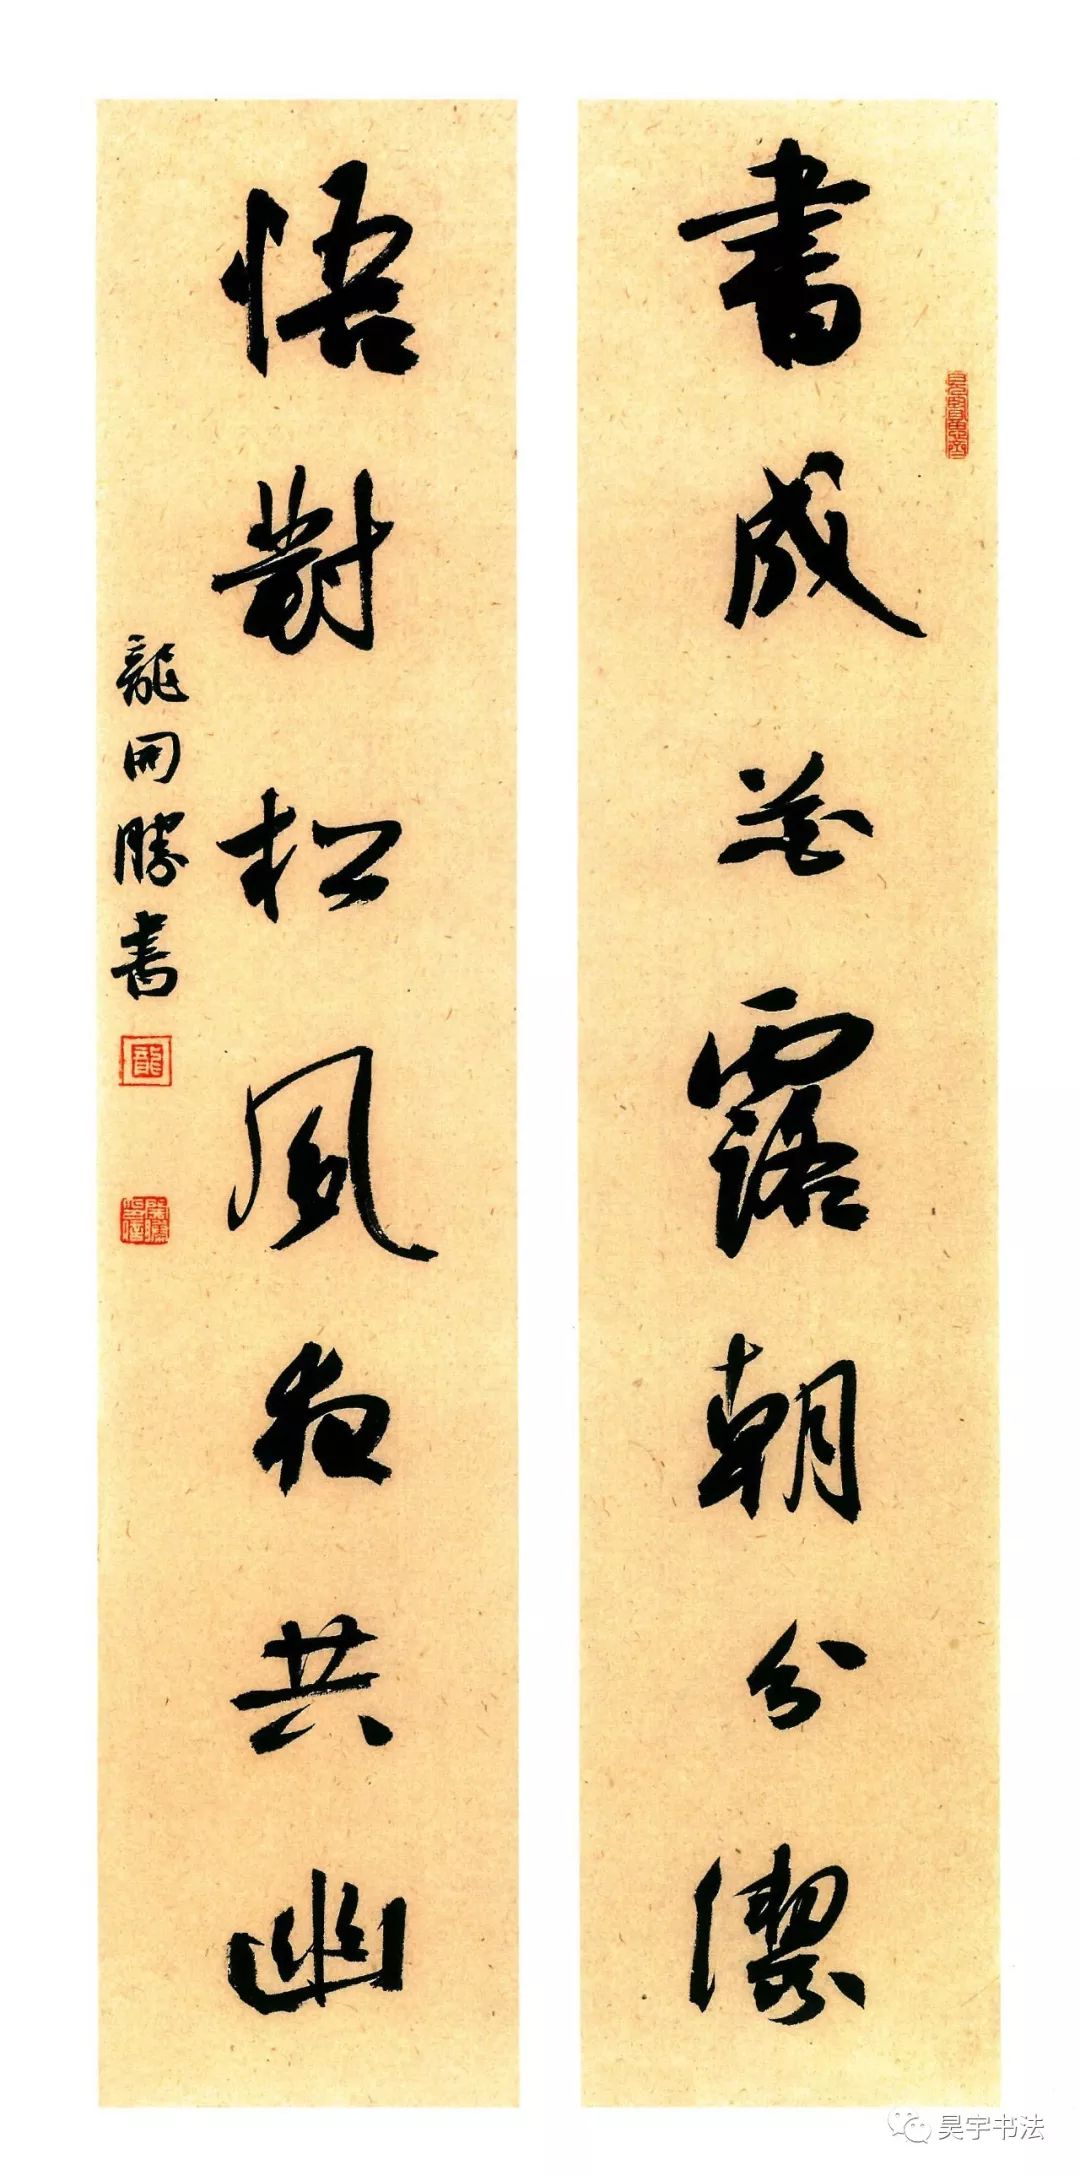 書成花露朝分潔
悟對松風夜共幽
龍開勝書
昊宇书法